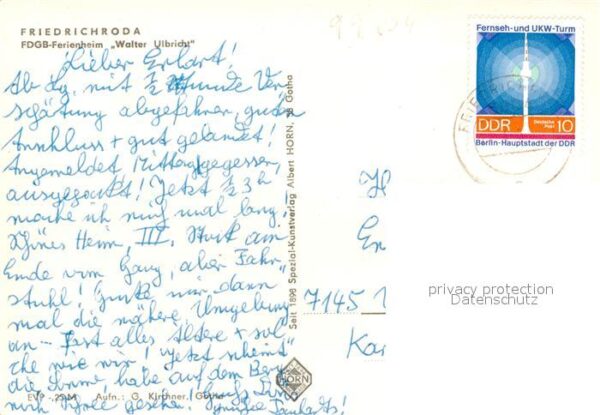 FRIEDRICHRODA
FDGB-Ferienheim „Walter Ulbricht"
Lieber Erhart!
Ab Lg. mit ½ Stunde Ver-
spätung abgefahren, guten
Anschluss + gut gelandet!
Angemeldet, Mittaggegessen,
ausgepackt! Jetzt ½ 3 h
mache ich mich mal lang,
Schönes Heim, III. Stock am
Ende vom Gang, aber Fahr-
stuhl! Gucke mir dann
mal die nähere Umgebung
an - Fast alles Ältere + sol-
che wie wir! Jetzt scheint
die Sonne habe auf dem Berg
noch gesehen! Gruß
EVP -,25 M Aufn.: G. Kirchner, Gotha
Seit 1896 Spezial-Kunstverlag Albert HORN, 58 Gotha
HORN
Fernseh-und UKW-Turm
DDR Deutsche Post 10
Berlin-Hauptstadt der DDR
FRIEDRICH
7145
Kar
privacy protection
Datenschutz